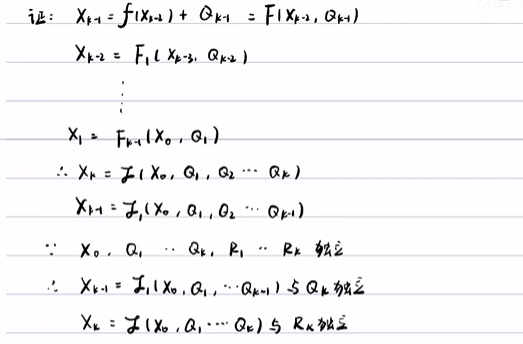 证: X_{k-1} = f(X_{k-2}) + Q_{k-1} = F(X_{k-2}, Q_{k-1})
X_{k-2} = F_1(X_{k-3}, Q_{k-2})
⋮
X_1 = F_{k-1}(X_0, Q_1)
∴ X_k = ℱ(X_0, Q_1, Q_2 ⋯ Q_k)
X_{k-1} = ℱ_1(X_0, Q_1, Q_2 ⋯ Q_{k-1})
∵ X_0, Q_1 ⋯ Q_k, R_1 ⋯ R_k 独立
∴ X_{k-1} = ℱ_1(X_0, Q_1, ⋯ Q_{k-1}) 与 Q_k 独立
X_k = ℱ(X_0, Q_1 ⋯ Q_k) 与 R_k 独立